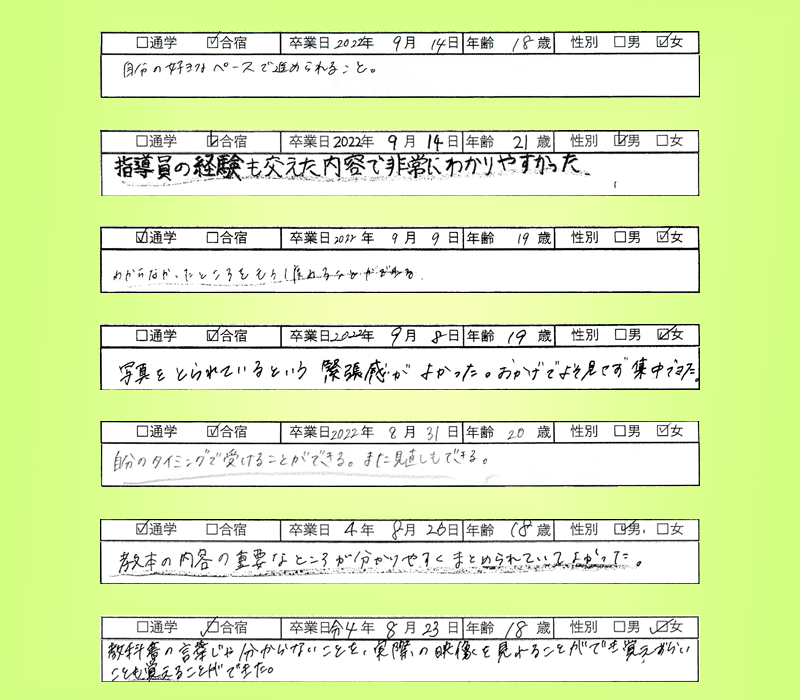 □通学 ☑合宿 卒業日2022年 9月 14日 年齢 18歳 性別 □男 ☑女
自分の好きなペースで進められること。
□通学 ☑合宿 卒業日2022年 9月 14日 年齢 21歳 性別 ☑男 □女
指導員の経験も交えた内容で非常にわかりやすかった。
☑通学 □合宿 卒業日2022年 9月 9日 年齢 19歳 性別 □男 ☑女
わからなかったところをもう1度みることができる。
□通学 ☑合宿 卒業日2022年 9月 8日 年齢 19歳 性別 □男 ☑女
写真をとられているという緊張感がよかった。おかげでよそ見せず集中できた。
□通学 ☑合宿 卒業日2022年 8月 31日 年齢 20歳 性別 □男 ☑女
自分のタイミングで受けることができる。また見直しもできる。
☑通学 □合宿 卒業日 4年 8月 26日 年齢 18歳 性別 ☑男 □女
教本の内容の重要なところが分かりやすくまとめられていてよかった。
□通学 ☑合宿 卒業日令4年 8月 23日 年齢 18歳 性別 □男 ☑女
教科書の言葉じゃ分からないことを、実際の映像を見れることができ覚えずらい
ことも覚えることができた。